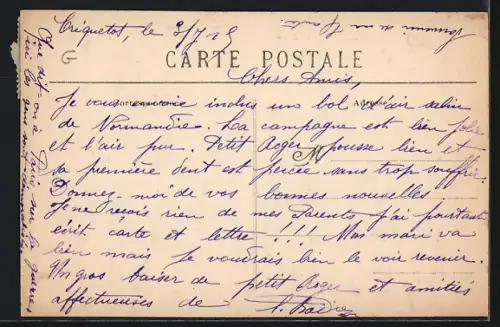 Criquetot, le 3/7 15
CARTE POSTALE
Correspondance
Adresse
Chers Amis,
Je vous envoie inclus un bol d'air salin
de Normandie. La campagne est bien jolie
et l'air pur. Petit Roger pousse bien et
sa première dent est percée sans trop souffrir.
Donnez-moi de vos bonnes nouvelles
Je ne reçois rien de mes Parents j'ai pourtant
écrit carte et lettre !!! Mon mari va
bien mais je voudrais bien le voir revenir.
Un gros baiser de petit Roger et amitiés
affectueuses de
Que dit-on à Paris sur la guerre,
Souvenir de
G
M